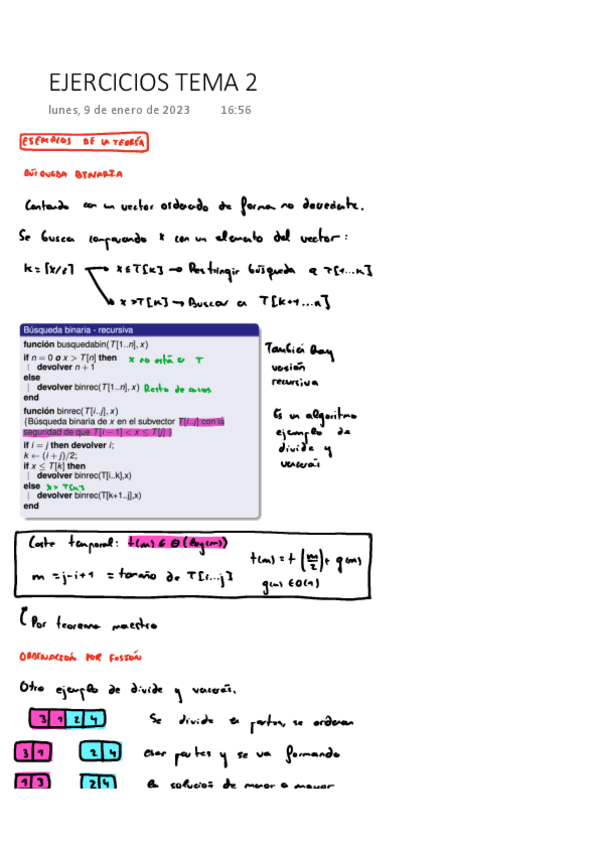 EJERCICIOS TEMA 2
lunes, 9 de enero de 2023 16:56
EJEMPLOS DE LA TEORÍA
BÚSQUEDA BINARIA
Contando con un vector ordenado de forma no decreciente.
Se busca comparando x con un elemento del vector:
k = ⌈x/2⌉ → x ≤ T[k] → Restringir búsqueda a T[1...k]
→ x > T[k] → Buscar en T[k+1...n]
Búsqueda binaria - recursiva
función busquedabin(T[1..n], x)
if n = 0 o x > T[n] then x no está en T
devolver n + 1
else
devolver binrec(T[1..n], x) Resto de casos
end
función binrec(T[i..j], x)
{Búsqueda binaria de x en el subvector T[i..j] con la
seguridad de que T[i − 1] < x ≤ T[j] }
if i = j then devolver i;
k ← (i + j)/2;
if x ≤ T[k] then
devolver binrec(T[i..k],x)
else x > T[k]
devolver binrec(T[k+1..j],x)
end
También hay
versión
recursiva
Es un algoritmo
ejemplo de
divide y
vencerás
Coste temporal: t(m) ∈ Θ(log(m))
t(m) = t(m/2) + g(m)
m = j-i+1 = tamaño de T[i...j]
g(m) ∈ Θ(1)
Por teorema maestro
ORDENACIÓN POR FUSIÓN
Otro ejemplo de divide y vencerás.
3 1 2 4 Se divide en partes, se ordenan
3 1 2 4 esas partes y se va formando
1 3 2 4 la solución de menor a mayor